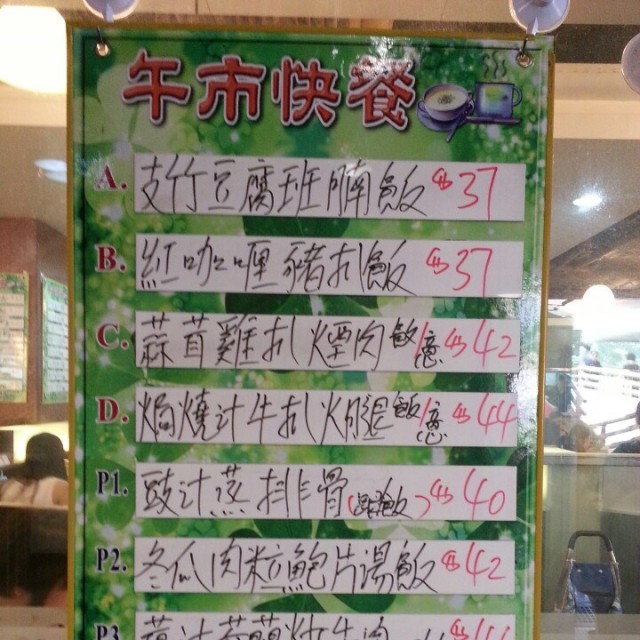 午市快餐
A. 支竹豆腐班腩飯 $37
B. 紅咖喱豬扒飯 $37
C. 蒜茸雞扒煙肉飯/意 $42
D. 焗燒汁牛扒火腿飯/意 $44
P1. 豉汁蒸排骨(飯) $40
P2. 冬瓜肉粒鮑片湯飯 $42
P3